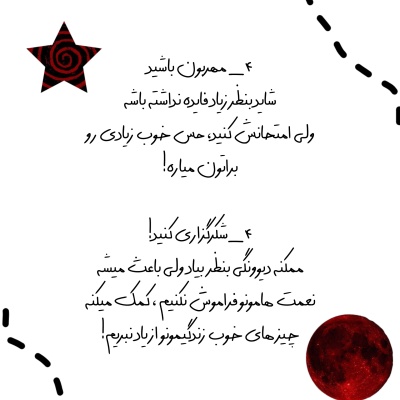 ۴_ مهربون باشید
شاید بنظر زیاد فایده نداشته باشه
ولی امتحانش کنید، حس خوب زیادی رو
براتون میاره!
۴_شکرگزاری کنید!
ممکنه دیوونگی بنظر بیاد ولی باعث میشه
نعمت هامونو فراموش نکنیم ، کمک میکنه
چیزهای خوب زندگیمونو از یاد نبریم!